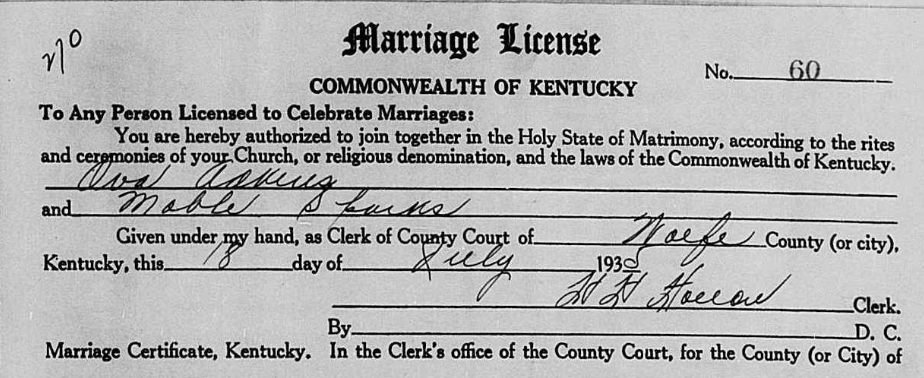 Marriage License
No. 60
COMMONWEALTH OF KENTUCKY
To Any Person Licensed to Celebrate Marriages:
You are hereby authorized to join together in the Holy State of Matrimony, according to the rites
and ceremonies of your Church, or religious denomination, and the laws of the Commonwealth of Kentucky.
Ova Adkins
and Mable Sparks
Given under my hand, as Clerk of County Court of Wolfe County (or city),
Kentucky, this 18 day of July 193
H H Clerk.
By D. C.
Marriage Certificate, Kentucky. In the Clerk's office of the County Court, for the County (or City) of